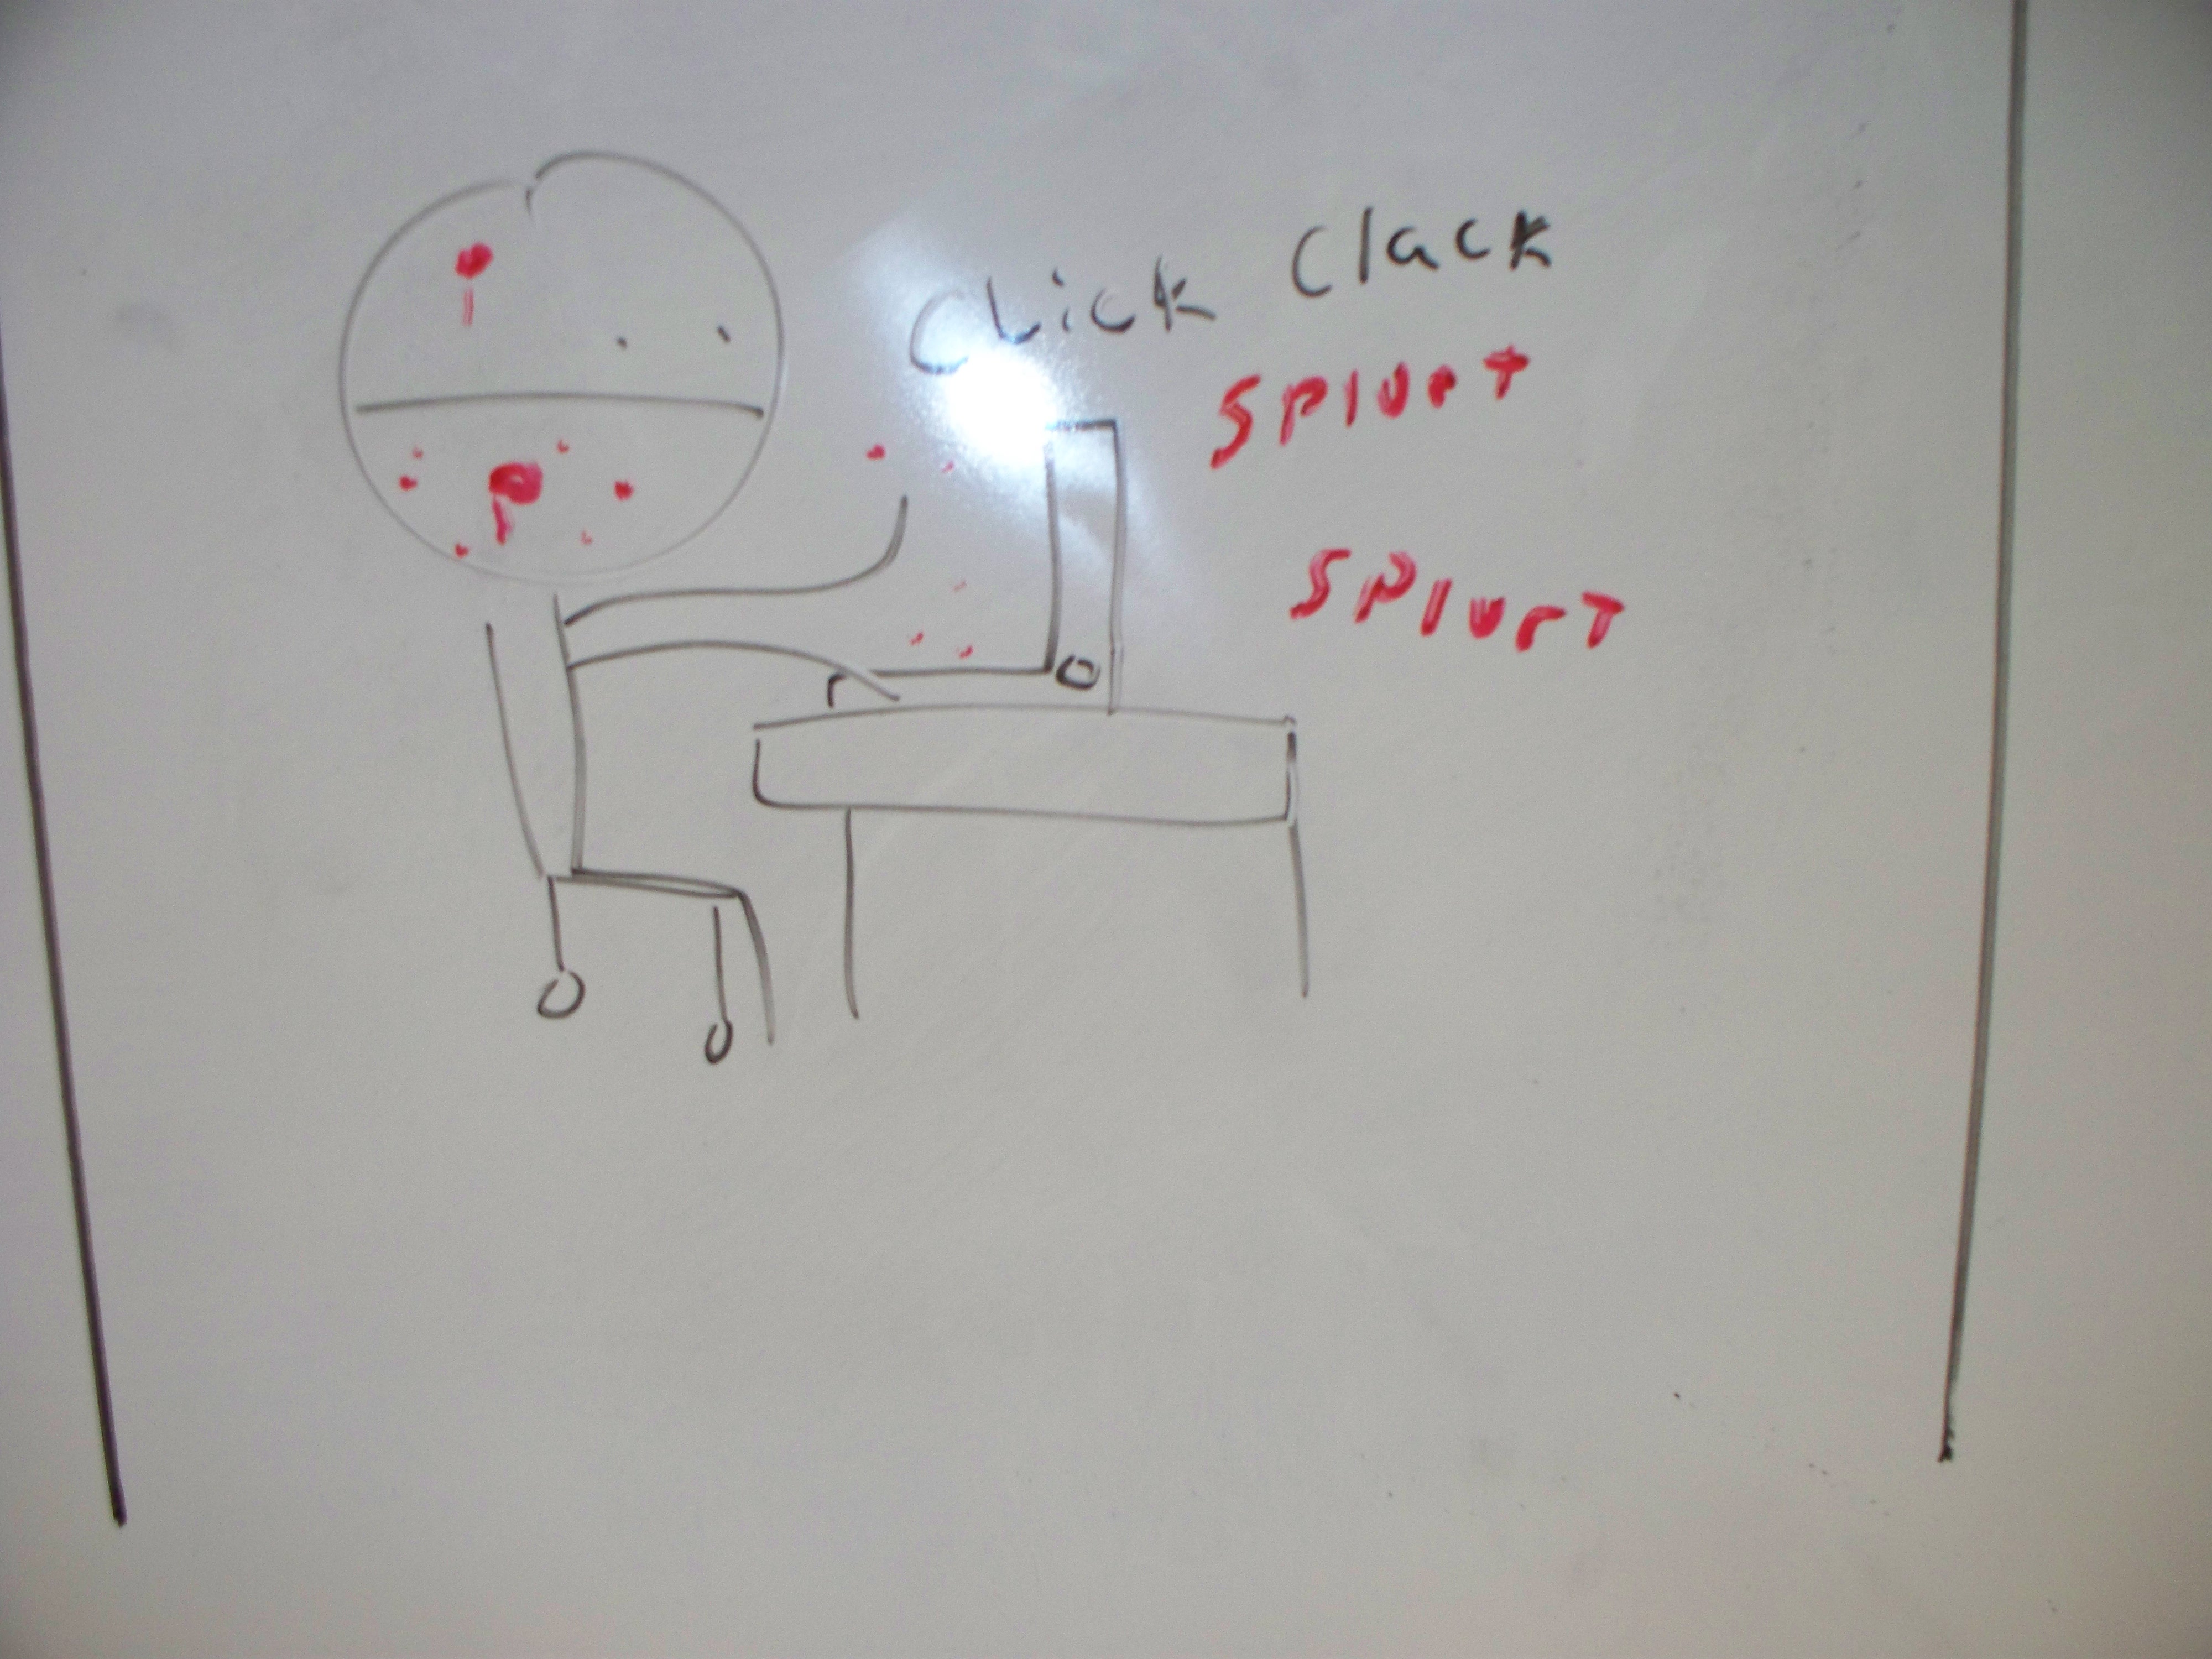 Click Clack
SPlurT
SPlurT